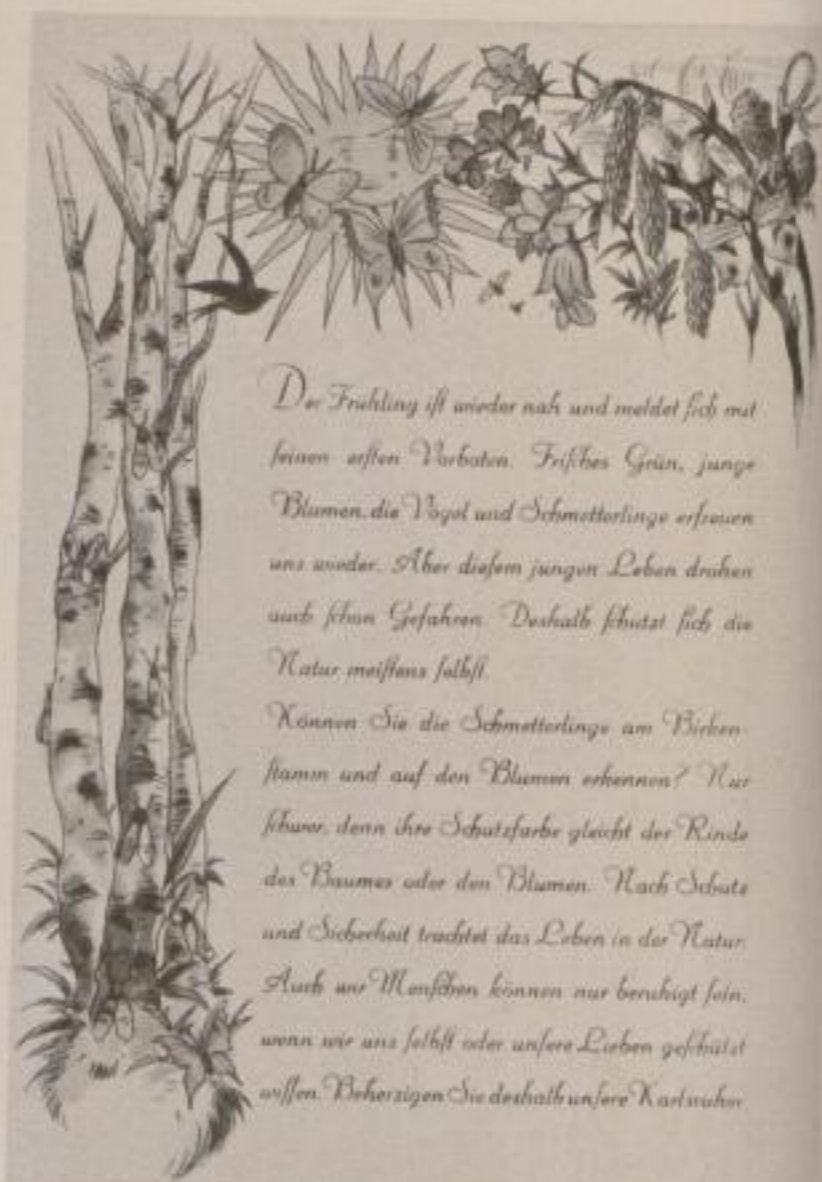 Der Frühling iſt wieder nah und meldet ſich mit
ſeinen erſten Vorboten. Friſches Grün, junge
Blumen, die Vögel und Schmetterlinge erfreuen
uns wieder. Aber dieſem jungen Leben drohen
auch ſchon Gefahren. Deshalb ſchützt ſich die
Natur meiſtens ſelbſt.
Können Sie die Schmetterlinge am Birken-
ſtamm und auf den Blumen erkennen? Nur
ſchwer, denn ihre Schutzfarbe gleicht der Rinde
des Baumes oder den Blumen. Nach Schutz
und Sicherheit trachtet das Leben in der Natur.
Auch wir Menſchen können nur beruhigt ſein,
wenn wir uns ſelbſt oder unſere Lieben geſchützt
wiſſen. Beherzigen Sie deshalb unſere Karlsruher